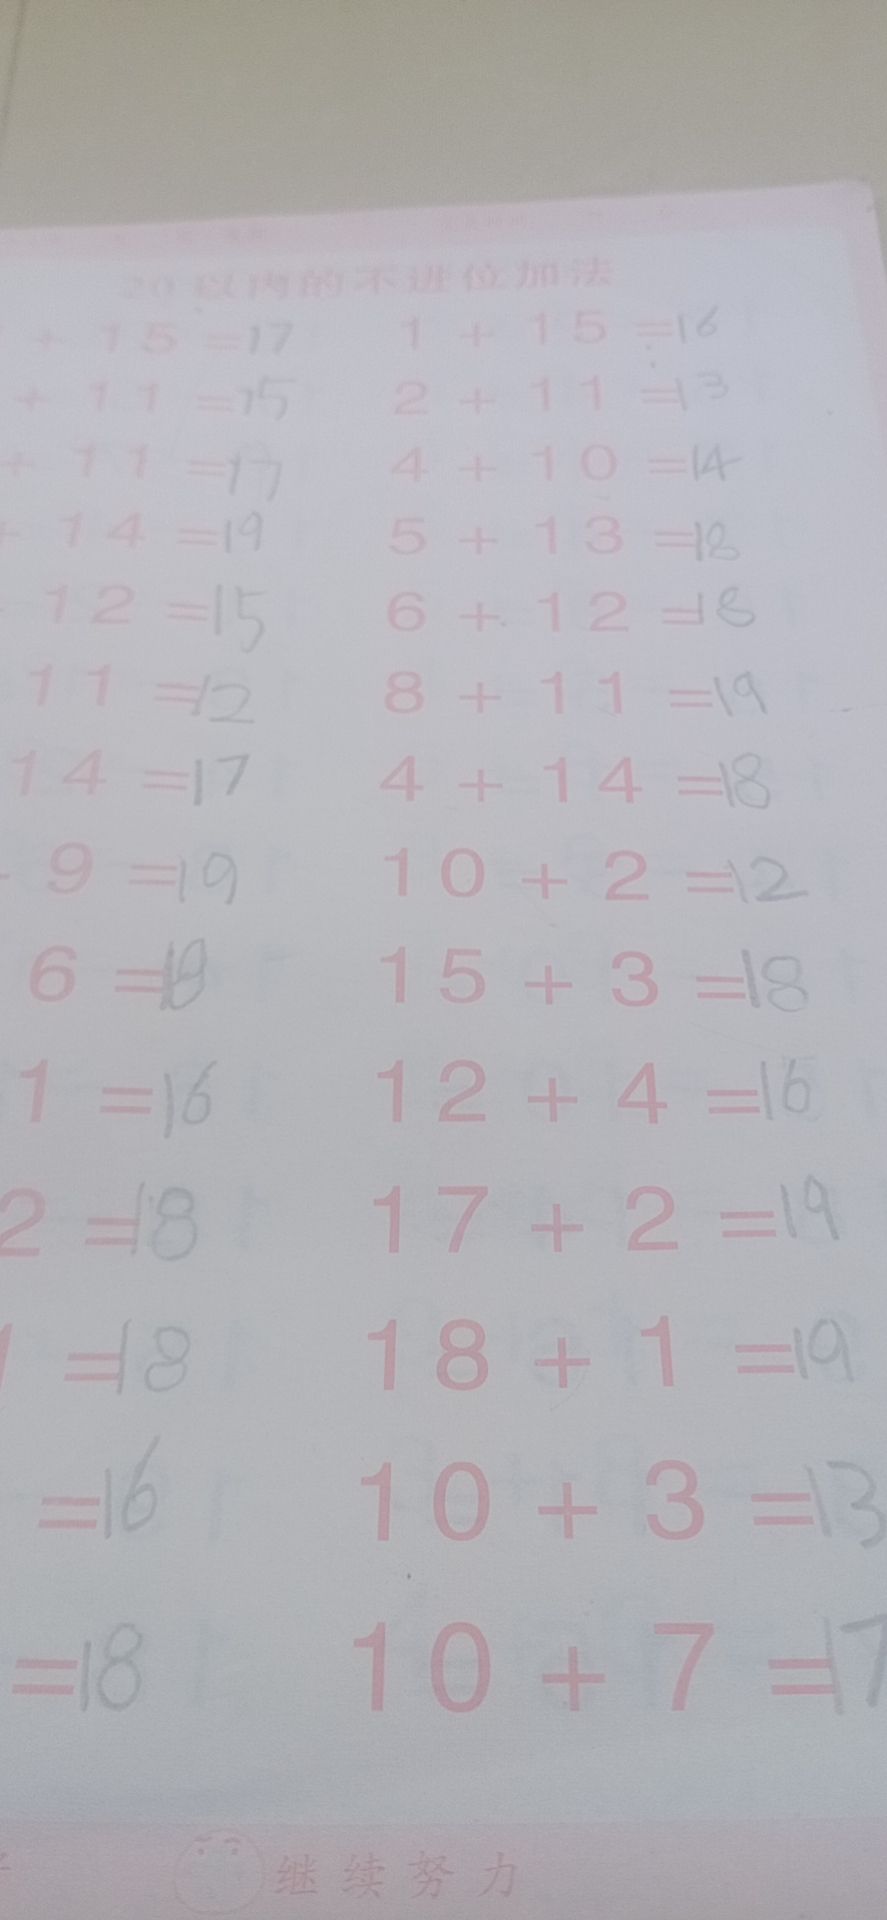 20以内的不进位加法
+ 15 =17 1 + 15 =16
+ 11 =15 2 + 11 =13
+ 11 =17 4 + 10 =14
+ 14 =19 5 + 13 =18
12 =15 6 + 12 =18
11 =12 8 + 11 =19
14 =17 4 + 14 =18
9 =19 10 + 2 =12
6 =18 15 + 3 =18
1 =16 12 + 4 =16
2 =18 17 + 2 =19
1 =18 18 + 1 =19
=16 10 + 3 =13
=18 10 + 7 =17
继续努力